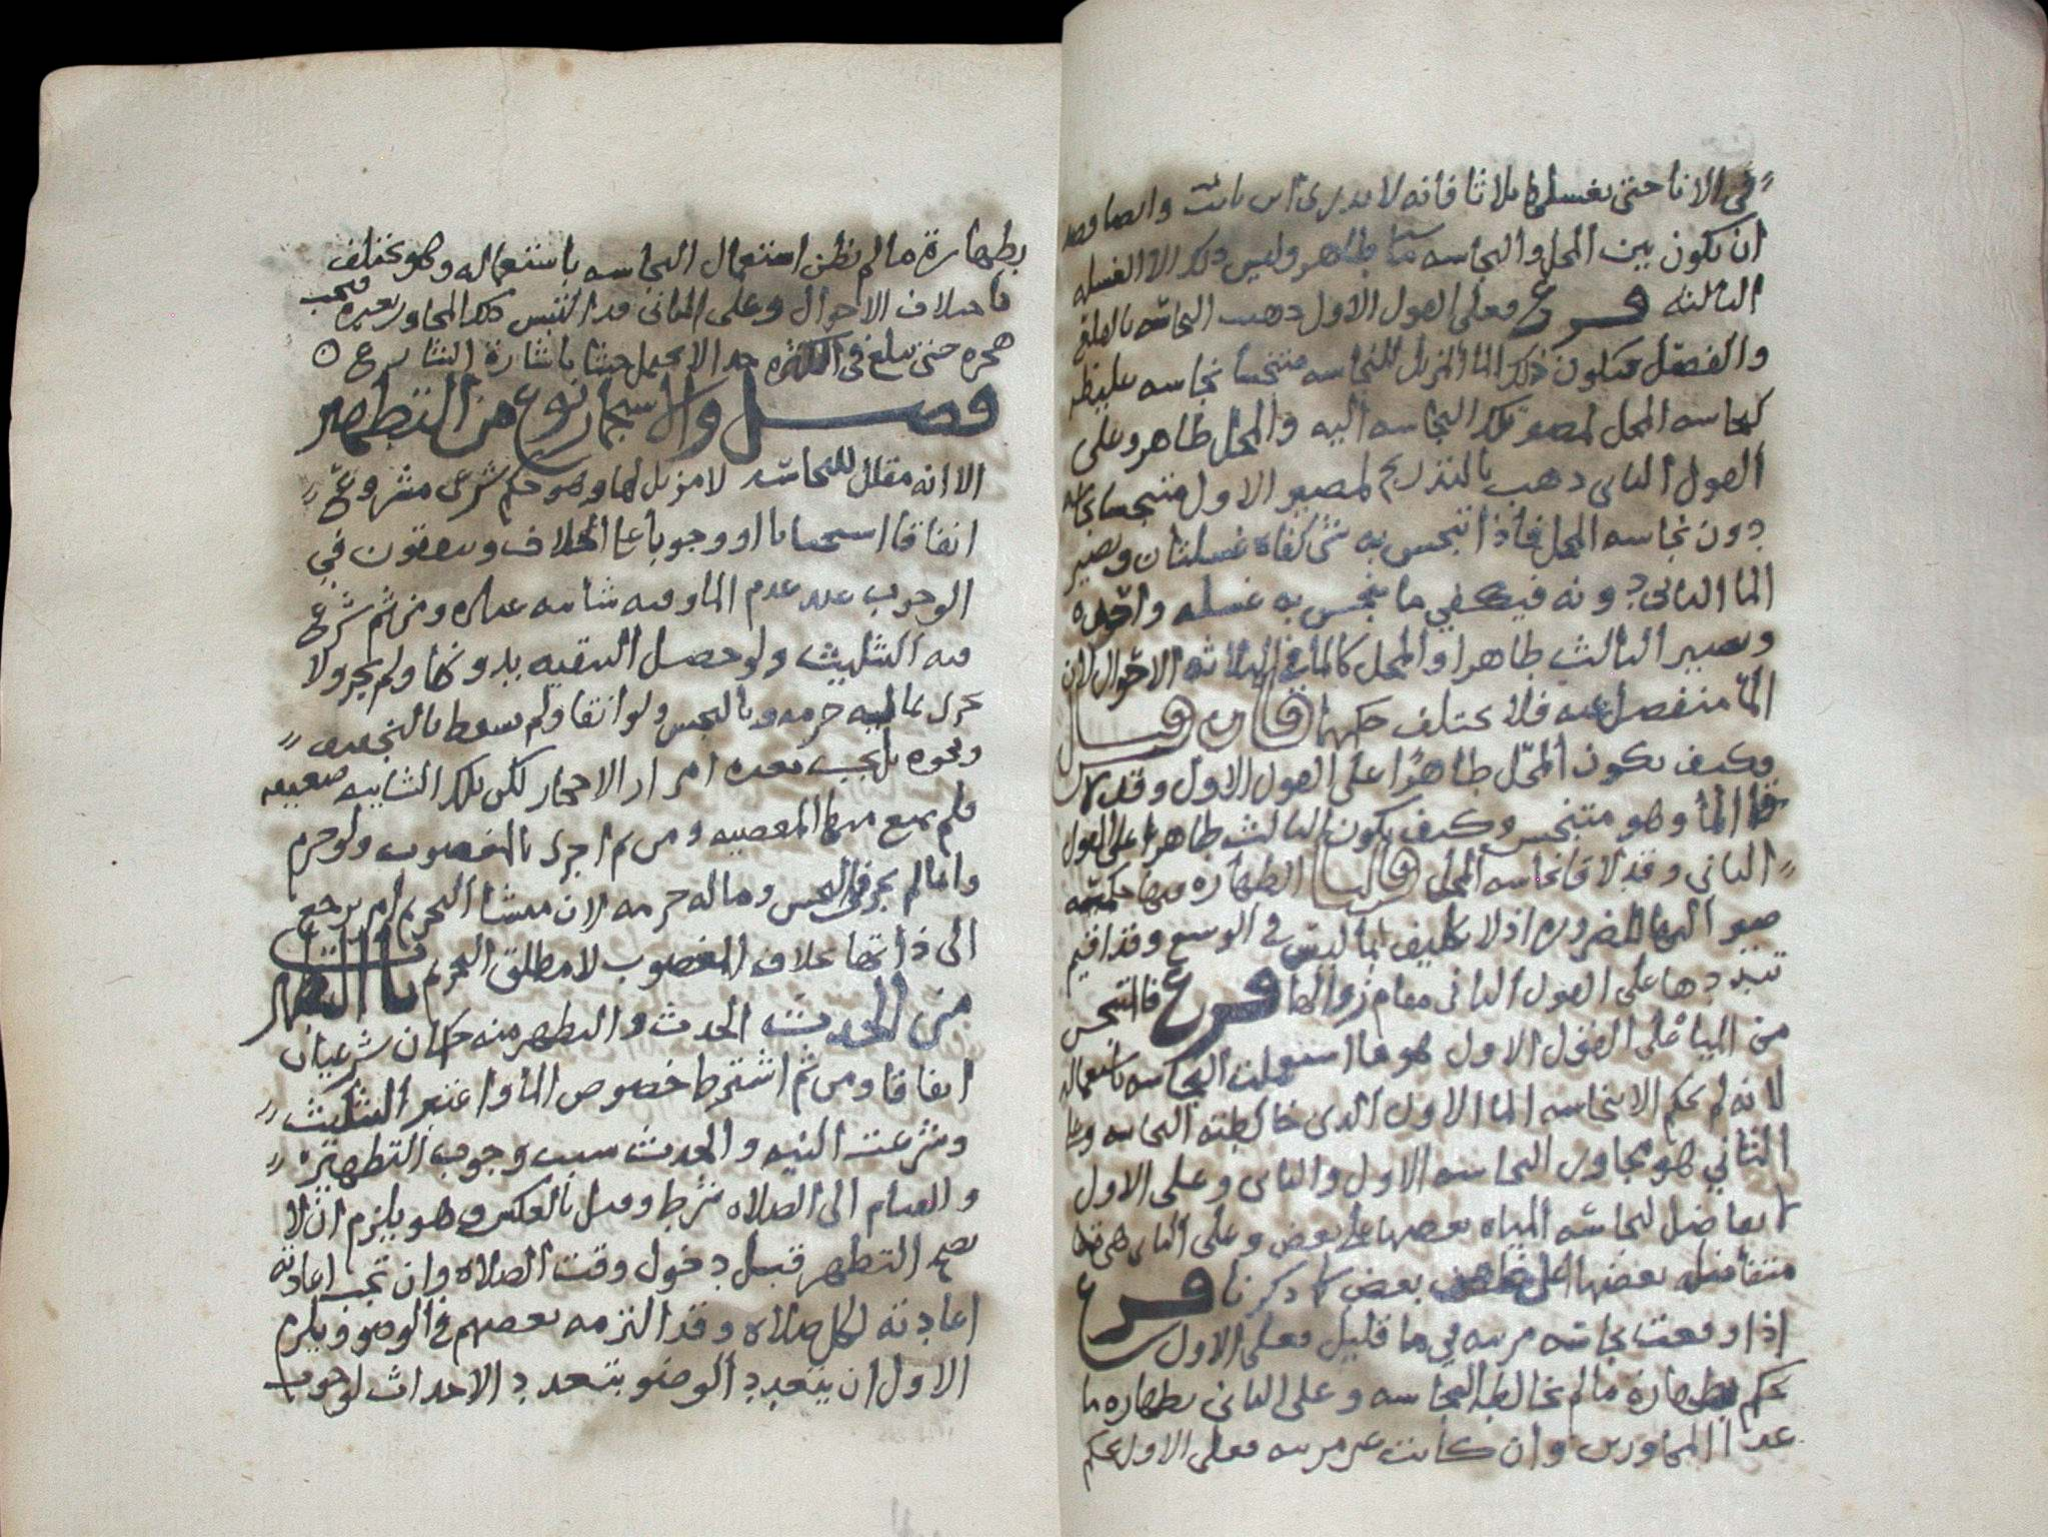 في الانا حتى يغسلها ثلاثا فانه لا يدرى اين باتت وايضا
ان يكون بين المحل والنجاسه ما طاهر وليس ذلك الا الغسله
الثالثه فرع فعلى القول الاول ذهبت النجاسه
والفصل فيكون ذلك الما المزيل للنجاسه متنجسا نجاسه غليظه
كنجاسه المحل لمصير تلك النجاسه اليه والمحل طاهر وعلى
القول الثاني ذهب بالتدريج لمصير الاول متنجسا نجاسه
دون نجاسه المحل فاذا تنجس به شي كفاه غسلتان ويصير
الما الثاني دونه فيكفي ما ينجس به غسله واحده
ويصير الثالث طاهرا والمحل كالما في الثلاثه الاحوال لان
الما منفصل عنه فلا يختلف حكمهما فان قيل
وكيف يكون المحل طاهرا على القول الاول وقد
الما وهو متنجس وكيف يكون الثالث طاهرا على القول
الثاني وقد لاقا نجاسه المحل قلنا الطهاره
صير اليها للضروره اذ لا تكليف بما ليس في الوسع وقد اقيم
على القول الثاني مقام زوالها فرع فالمتنجس
من المياه على القول الاول هو ما استعملت النجاسه باستعماله
لانه لم يحكم الا بنجاسه الما الاول الذي خالطته النجاسه
الثاني هو مجاور النجاسه الاول والثاني وعلى الاول
لا تفاضل لنجاسه المياه بعضها على بعض وعلى الثاني هي
متفاضله بعضها بعض كما ذكرنا فرع
اذا وقعت نجاسه مرئيه في ما قليل فعلى الاول
يحكم بطهارة ما لم تخالطه النجاسه وعلى الثاني بطهاره ما
عدا المجاورين وان كانت غير مرئيه فعلى الاول يحكم
بطهارة ما لم يظن استعمال النجاسه باستعماله وهو يختلف
باختلاف الاحوال وعلى الثاني قد التبس ذلك المجاور بغيره فيجب
هجره حتى يبلغ في الكثره حدا لا يحمل خبثا باشارة الشارع
فصل والاستجمار نوع من التطهير
الا انه مقلل للنجاسه لا مزيل لها وهو حكم شرعي مشروع
اتفاقا استحبابا او وجوبا على الخلاف ويتفقون في
الوجوب عند عدم الما وفيه شائبه عباده ومن ثم شرع
فيه التثليث ولو حصل التنقيه بدونها ولم يجز ولا
يجزي بما له حرمه وبالنجس ولو انقا ولم يسقط بالتجفيف
ونحوه بل يجب بعده امرار الاحجار لكن تلك الشائبه ضعيفه
فلم يمنع منها المعصيه ومن ثم اجزى بالمغصوب ولو حرم
وانما لم يجز في النجس وما له حرمه لان منشا التحريم امر يرجع
الى ذاتها بخلاف المغصوب لا مطلق التحريم باب التطهر
من الحدث الحدث والتطهر منه حكمان شرعيان
اتفاقا ومن ثم اشترط خصوص الما واعتبر التثليث
وشرعت النيه والحدث سبب وجوب التطهر
والقيام الى الصلاه شرط وقيل بالعكس وهو يلزم ان لا
يصح التطهر قبل دخول وقت الصلاه وان تجب اعادته
اعادته لكل صلاه وقد التزمه بعضهم في الوضو ويلزم
الاول ان يتعدد الوضو بتعدد الاحداث لوجوب